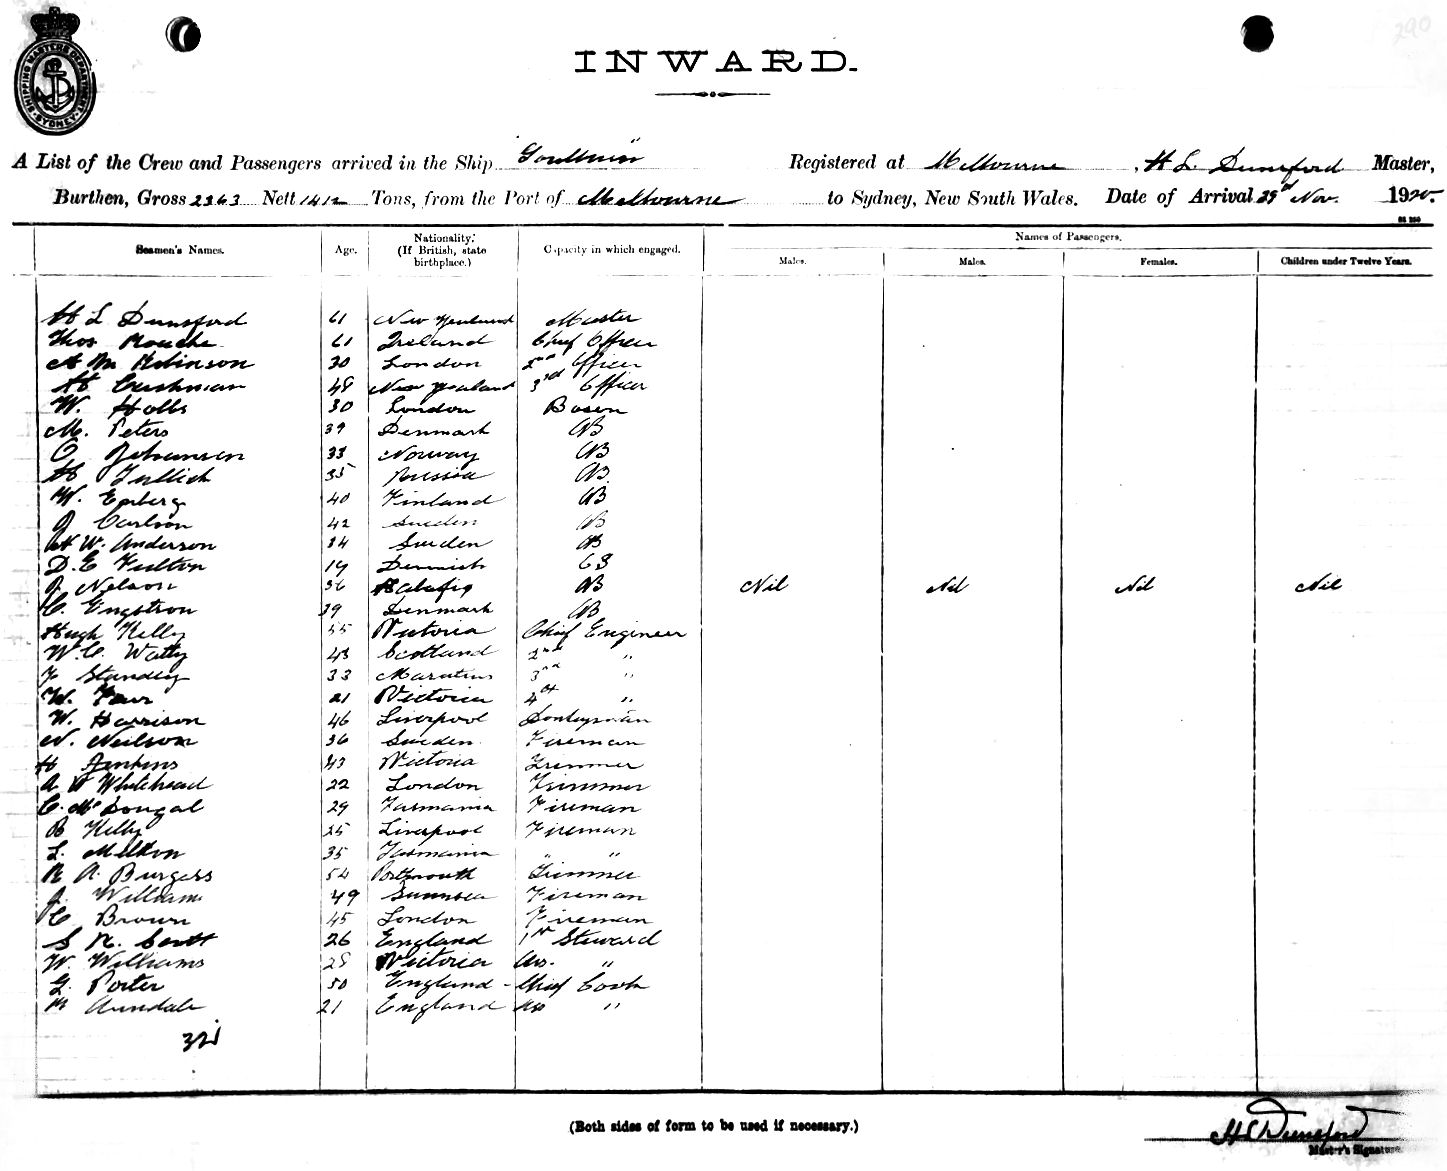 290
SHIPPING MASTERS DEPARTMENT SYDNEY
INWARD.
A List of the Crew and Passengers arrived in the Ship Registered at Melbourne, H L Dunsford Master,
Burthen, Gross 2363 Nett 1412 Tons, from the Port of Melbourne to Sydney, New South Wales. Date of Arrival 29 Nov. 1920.
Seamen's Names. Age. Nationality. (If British, state birthplace.) Capacity in which engaged. Names of Passengers.
Males. Males. Females. Children under Twelve Years.
H L Dunsford 61 New Zealand Master
Thos Rouche 61 Ireland Chief Officer
A M Robinson 30 London 2nd Officer
H Cushman 48 New Zealand 3rd Officer
W. Halls 30 London Bosen
M. Peters 39 Denmark AB
O Johansen 33 Norway AB
H 35 Russia AB
W. 40 Finland AB
J Carlson 42 Sweden AB
H W. Anderson 34 Sweden AB
D. E Fulton 19
J Nelson 36 AB Nil Nil Nil Nil
C Engstron 39 Denmark AB
Hugh Kelly 55 Victoria Chief Engineer
W. C. Watty 43 Scotland 2nd "
F Standley 33 3rd "
W. 21 Victoria 4th "
W. Harrison 46 Liverpool Donkeyman
N. Neilson 36 Sweden Fireman
H Jenkins 43 Victoria Trimmer
A W Whitehead 22 London Trimmer
C. McDougal 29 Tasmania Fireman
B Kelly 25 Liverpool Fireman
L. Melton 35 Tasmania " "
R A. Burgess 54 Portsmouth Trimmer
J. Williams 49 Swansea Fireman
C Brown 45 London Fireman
S R. Scott 26 England 1st Steward
W. Williams 28 Victoria Ass. "
G. Porter 50 England - Chief Cook
Arundale 21 England Ass "
32
(Both sides of form to be used if necessary.)
H L Dunsford
Master's Signature.